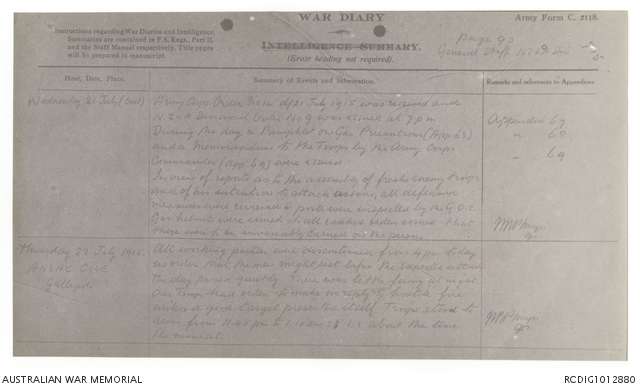 WAR DIARY
Army Form C. 2118.
Instructions regarding War Diaries and Intelligence
Summaries are contained in F.S. Regs., Part II,
and the Staff Manual respectively. Title pages
will be prepared in manuscript.
INTELLIGENCE SUMMARY.
(Erase heading not required).
Page 90
General Staff
Hour, Date, Place.
Summary of Events and Information.
Remarks and references to Appendices
Wednesday 21 July (cont)
Army Corps Order No 12 d/21 July 1915 was received and
Divisional Order No 9 was issued at 7 pm
Appendix 67
During the day a Pamphlet on Gas Precautions (App 68)
" 68
and a Memorandum to the Troops by the Army Corps
Commander (App 69) were issued
" 69
In view of reports as to the assembly of fresh enemy troops
and of an intention to attack, all defensive
measures were reviewed & posts were inspected by the G.O.C.
Gas helmets were issued to all ranks & orders issued that
these were to be invariably carried on the person
Thursday 22 July 1915
ANZAC COVE
Gallipoli
All working parties were discontinued from 4 pm today
in order that the men might rest before the expected attack
the day passed quietly. There was little firing at night
Our troops had orders to make no reply to hostile fire
unless a good target presented itself. Troops stood to
arms from 11.45 pm to
about the time
the moonset.
AUSTRALIAN WAR MEMORIAL
RCDIG1012880